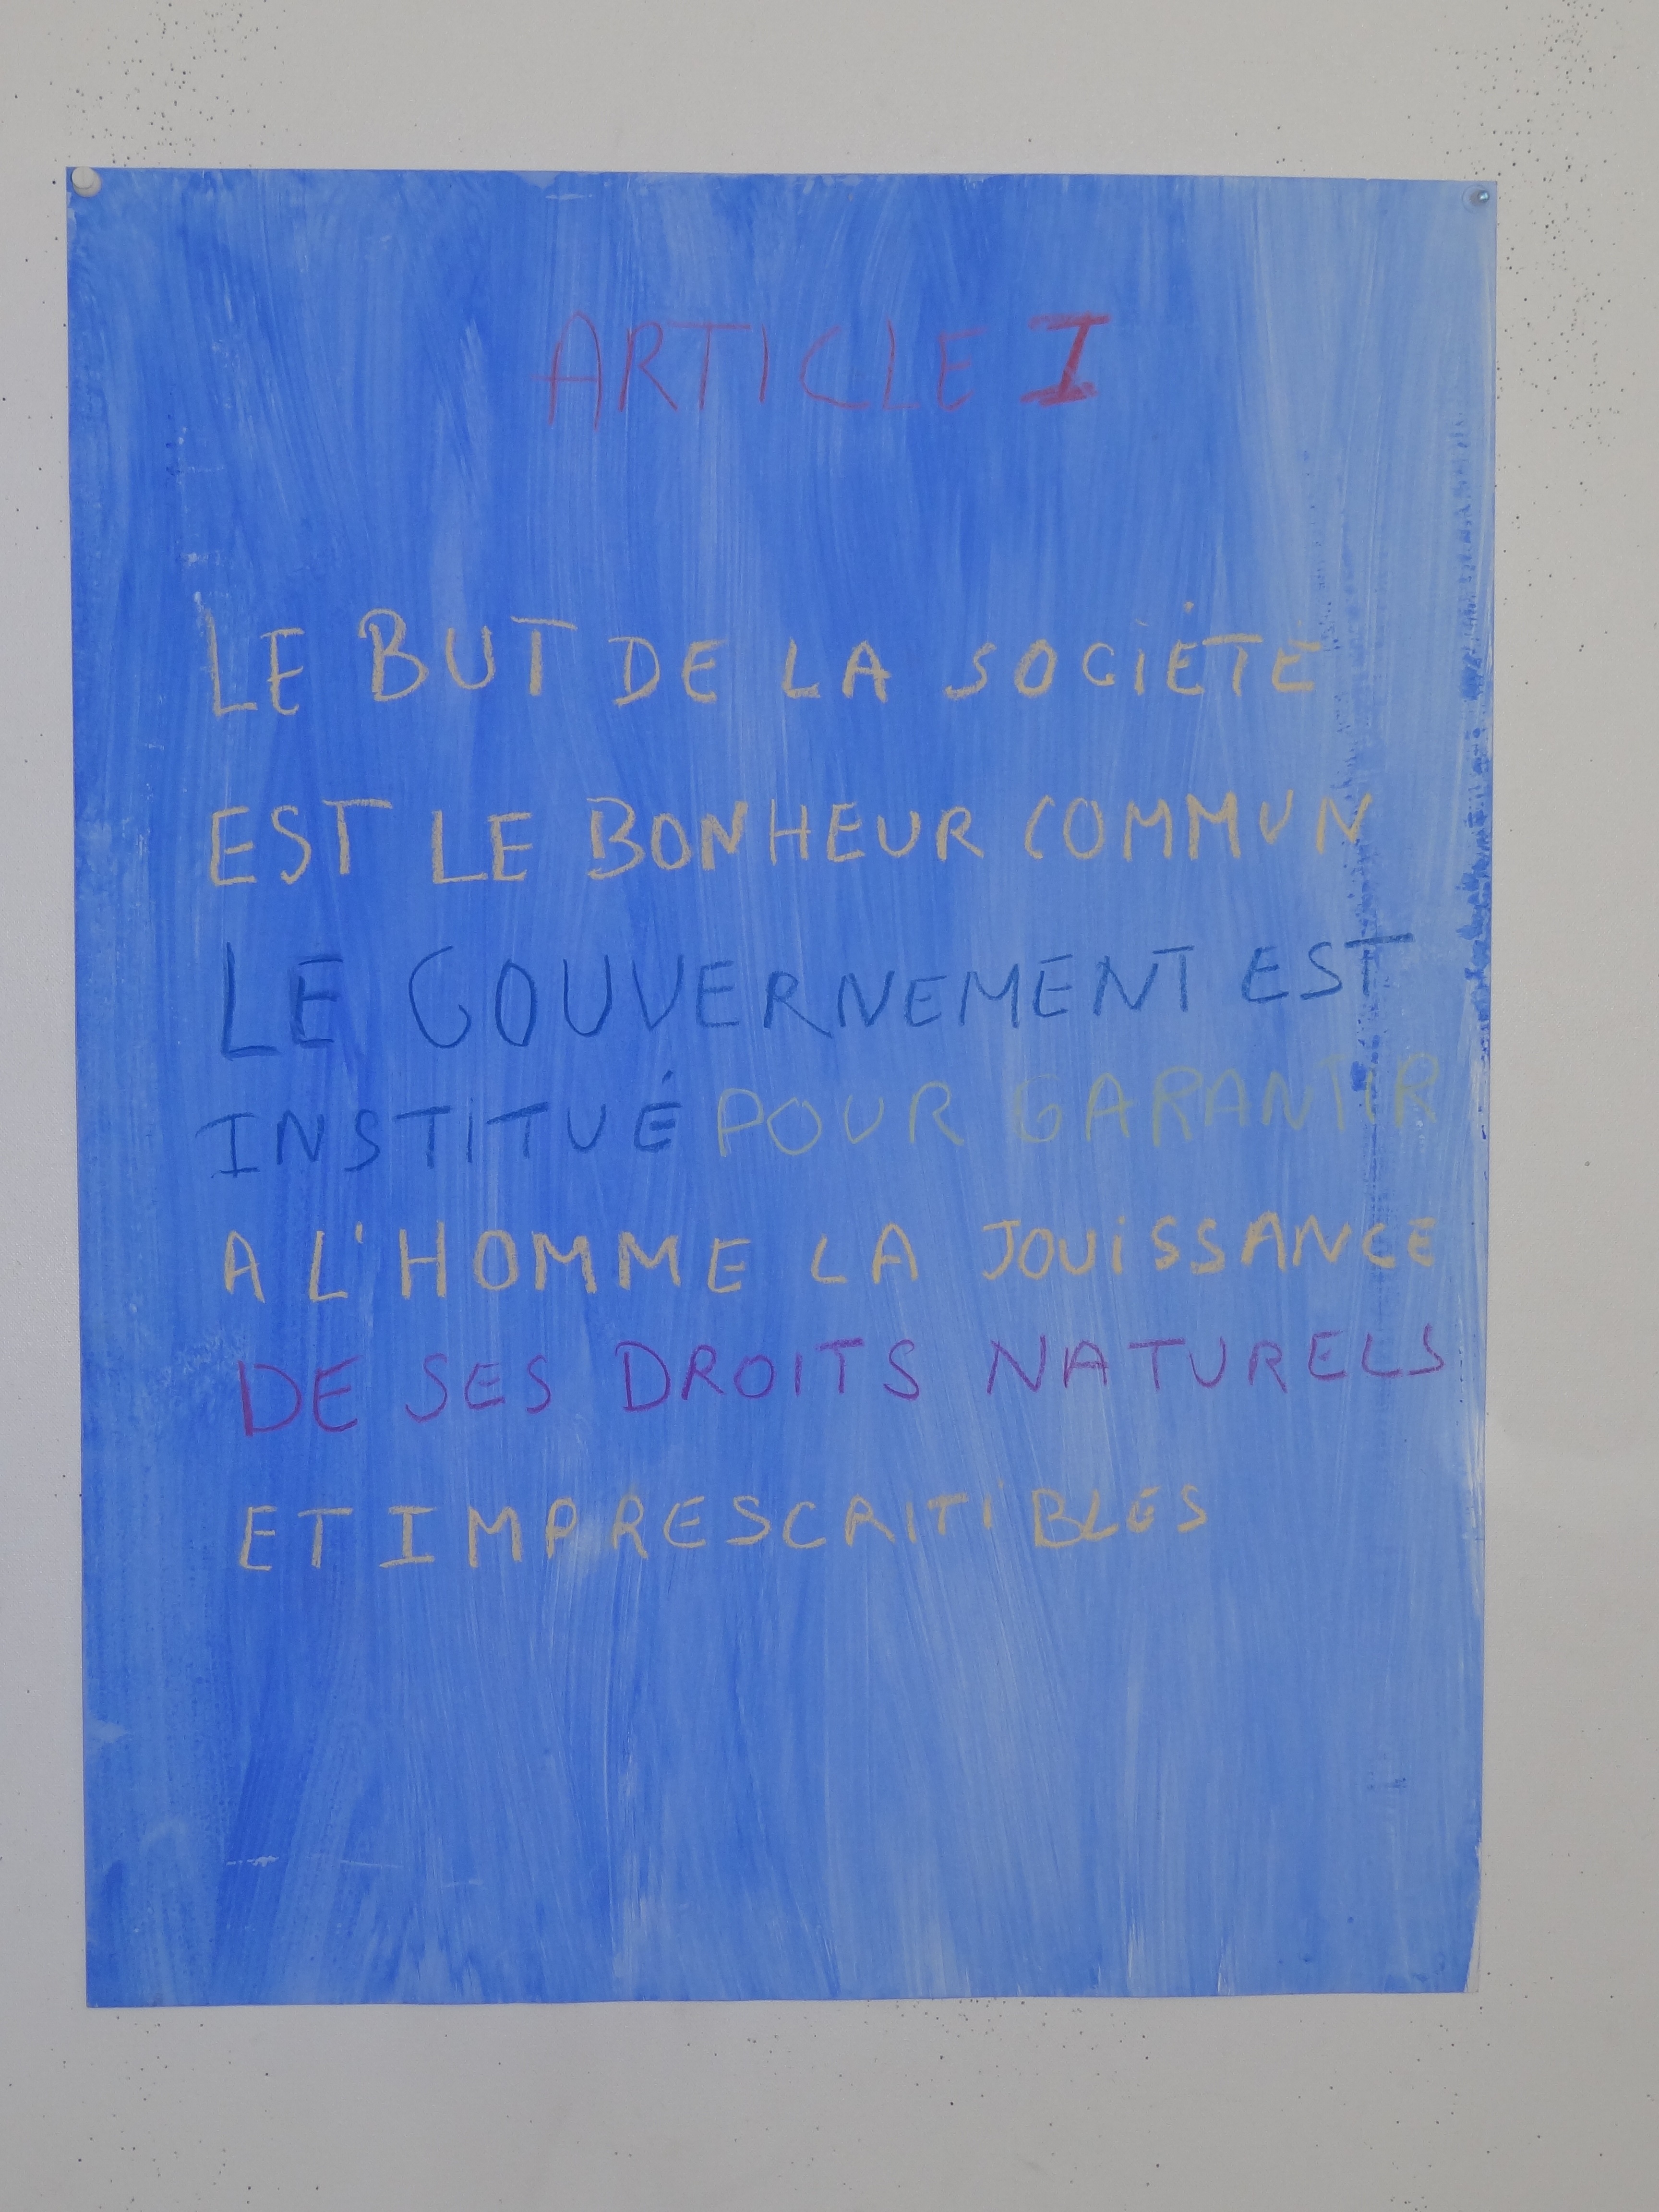 ARTICLE I
LE BUT DE LA SOCIÉTÉ
EST LE BONHEUR COMMUN
LE GOUVERNEMENT EST
INSTITUÉ POUR GARANTIR
A L'HOMME LA JOUISSANCE
DE SES DROITS NATURELS
ET IMPRESCRITIBLES